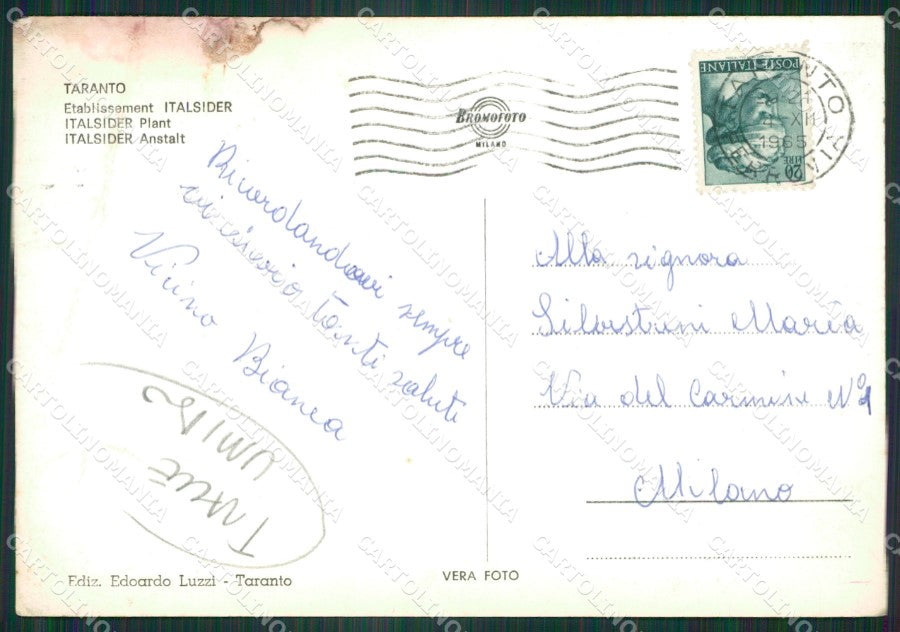 TARANTO
Etablissement ITALSIDER
ITALSIDER Plant
ITALSIDER Anstalt
BROMOFOTO
MILANO
POSTE ITALIANE
LIRE 20
XII
1965
Ricordandovi sempre
vi invio tanti saluti
Vicino Bianca
UMIDO
Alla signora
Silvestrini Maria
Via del Carmine N° 1
Milano
Ediz. Edoardo Luzzi - Taranto
VERA FOTO
CARTOLINOMANIA